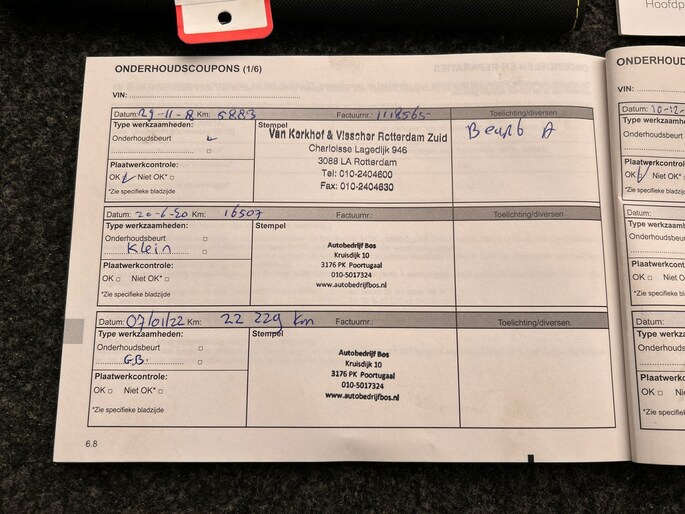 Hoofdp
ONDERHOUDSCOUPONS (1/6)
VIN:
Datum: 29-11-8 Km: 5883 Factuurnr.: 1118565- Toelichting/diversen
Type werkzaamheden:
Onderhoudsbeurt
Plaatwerkcontrole:
OK Niet OK*
*Zie specifieke bladzijde
Stempel
Van Kerkhof & Visscher Rotterdam Zuid
Charloisse Lagedijk 946
3088 LA Rotterdam
Tel: 010-2404600
Fax: 010-2404630
Beurt A
Datum: 20-6-20 Km: 16507 Factuurnr.: Toelichting/diversen
Type werkzaamheden:
Onderhoudsbeurt
Klein
Plaatwerkcontrole:
OK Niet OK*
*Zie specifieke bladzijde
Stempel
Autobedrijf Bos
Kruisdijk 10
3176 PK Poortugaal
010-5017324
www.autobedrijfbos.nl
Datum: 07/01/22 Km: 22 229 km Factuurnr.: Toelichting/diversen
Type werkzaamheden:
Onderhoudsbeurt
G.B.
Plaatwerkcontrole:
OK Niet OK*
*Zie specifieke bladzijde
Stempel
Autobedrijf Bos
Kruisdijk 10
3176 PK Poortugaal
010-5017324
www.autobedrijfbos.nl
6.8
ONDERHOUD
VIN:
Datum: 10-12-
Type werkza
Onderhoudsb
Plaatwerkco
OK Ni
*Zie specifiek
Datum:
Type werkz
Onderhouds
Plaatwerkc
OK N
*Zie specifie
Datum:
Type werk
Onderhou
Plaatwerk
OK
*Zie specif